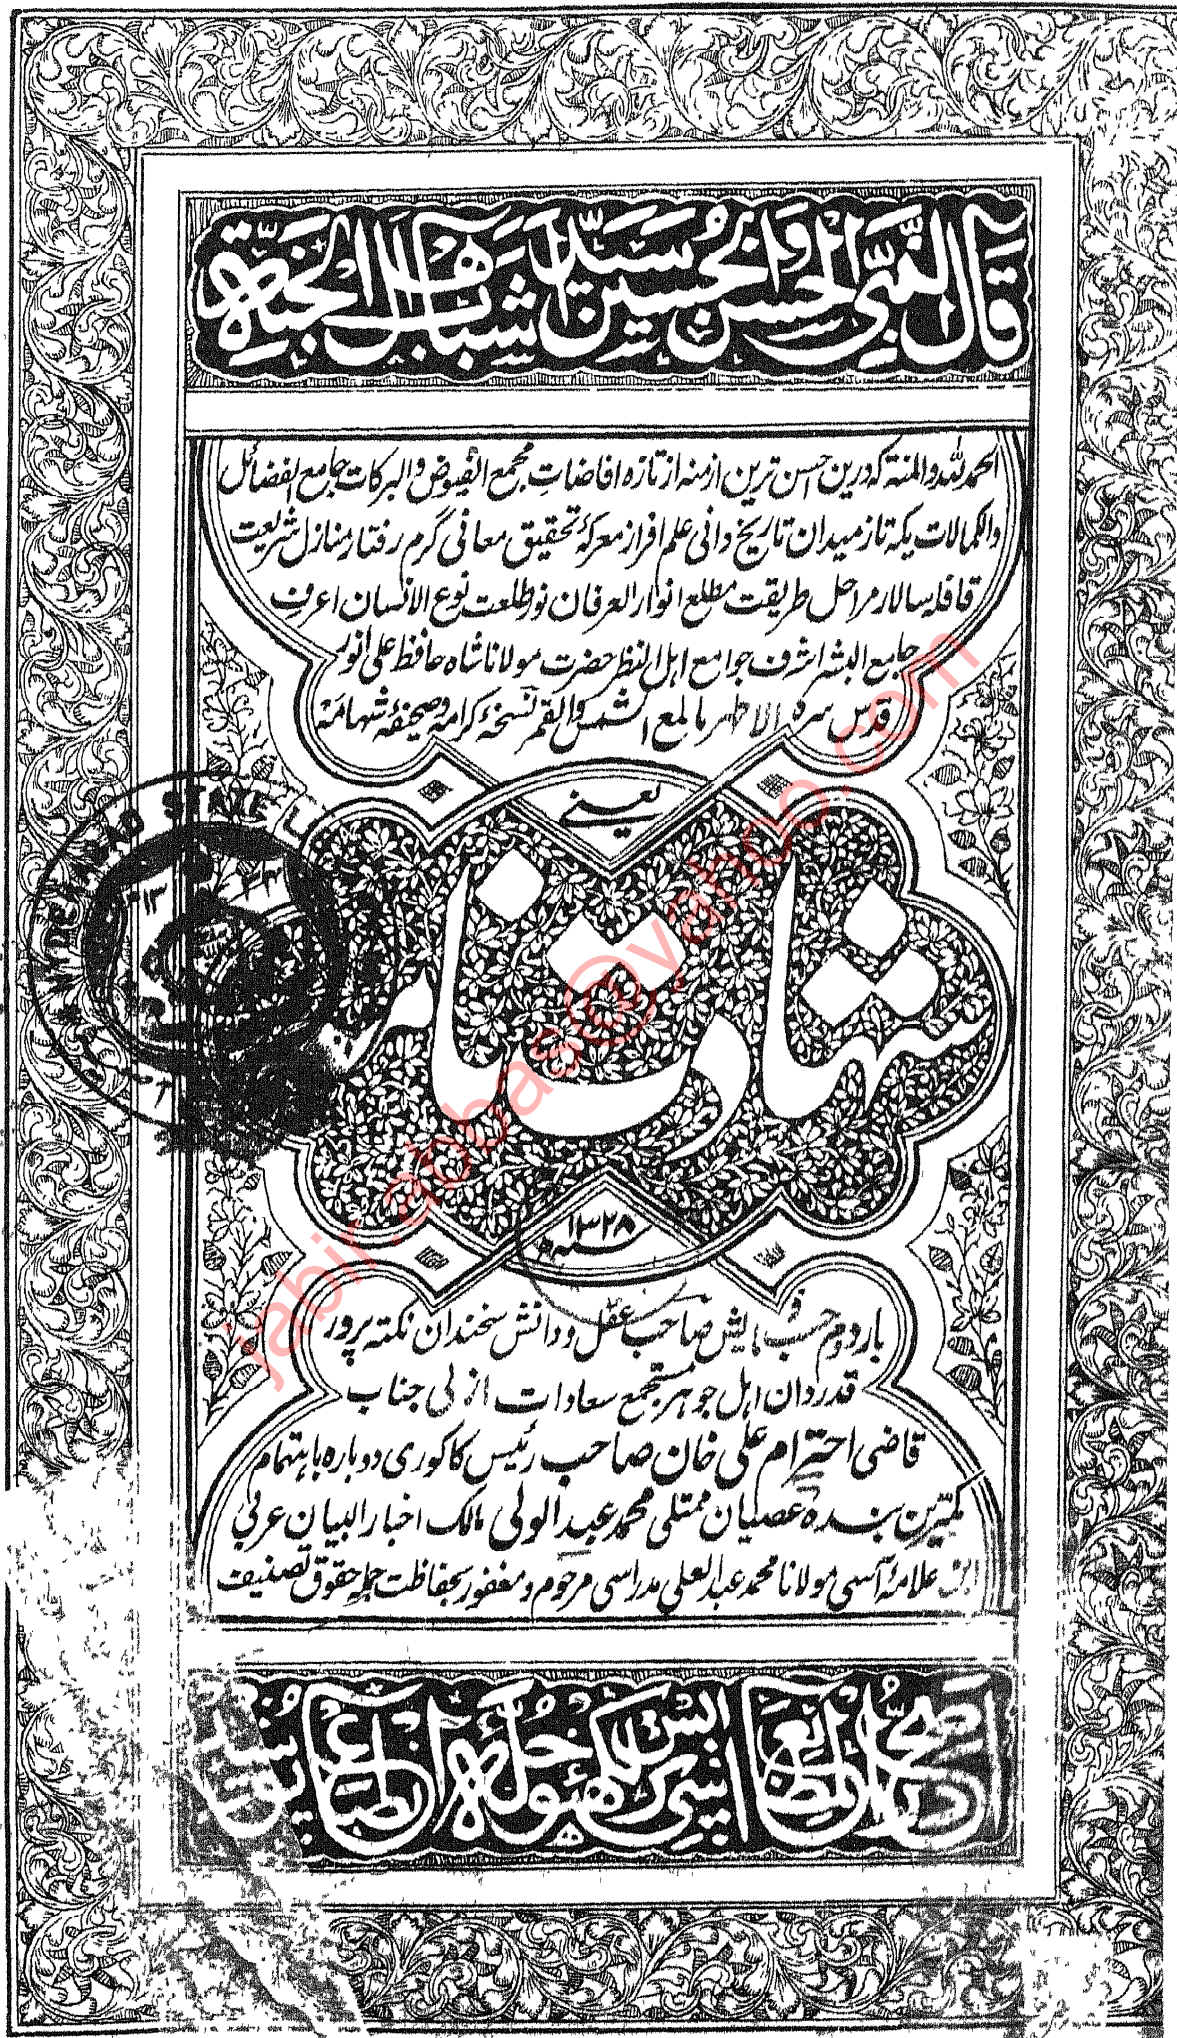 قَالَ النَّبِيُّ الْحَسَنُ وَالْحُسَيْنُ سَيِّدَا شَبَابِ اَهْلِ الْجَنَّةِ
الحمد للہ والمنۃ کہ درین احسن ترین ازمنہ از تازہ افاضاتِ مجمع الفیوض والبرکات جامع الفضائل
والکمالات یکہ تاز میدان تاریخ دانی علم افراز معرکۂ تحقیق معانی گرم رفتار منازل شریعت
قافلہ سالار مراحل طریقت مطلع انوار العرفان نور طلعت نوع الانسان اعرف
جامع البشر اشرف جوامع اہل النظر حضرت مولانا شاہ حافظ علی انور
قدس سرہ الاطہر ما لمع الشمس والقمر نسخۂ کرامہ وصحیفۂ شہامہ
یعنے
شہادت نامہ
سنہ ۱۳۲۸ھ
بار دوم حسب فرمایش صاحب عقل و دانش سخندان نکتہ پرور
قدردان اہل جوہر مستجمع سعادات ازلی جناب
قاضی احترام علی خان صاحب رئیس کاکوری دوبارہ باہتمام
کمترین بندہ عصیان ممتلی محمد عبد الولی مالک اخبار البیان عربی
ابن علامۂ آسی مولانا محمد عبد العلی مدراسی مرحوم ومغفور بحفاظت جملہ حقوق تصنیف
اصح المطابع لکھنؤ
HYDERABAD STATE L
jabir.abbas@yahoo.com